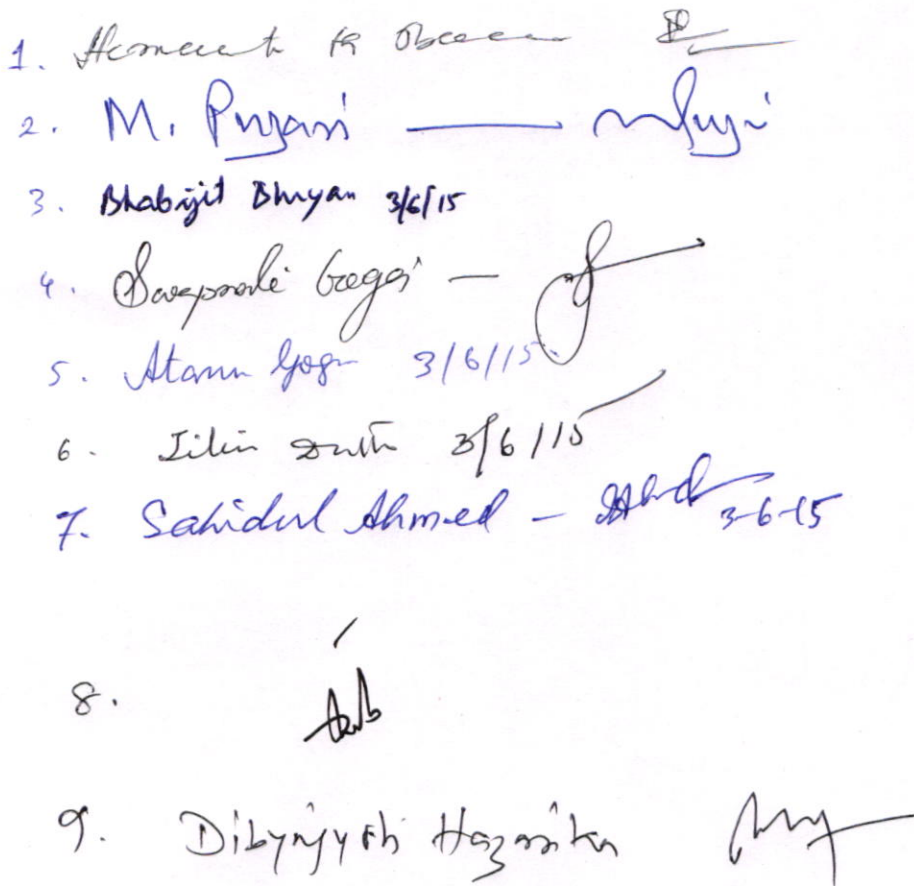 1. Hemant K
2. M. Pujari —
3. Bhabajit Bhuyan 3/6/15
4. Gogoi —
5. Atanu Gogoi 3/6/15
6. Jilin Dutta 3/6/15
7. Sahidul Ahmed - 3-6-15
8.
9. Dibyajyoti Hazarika